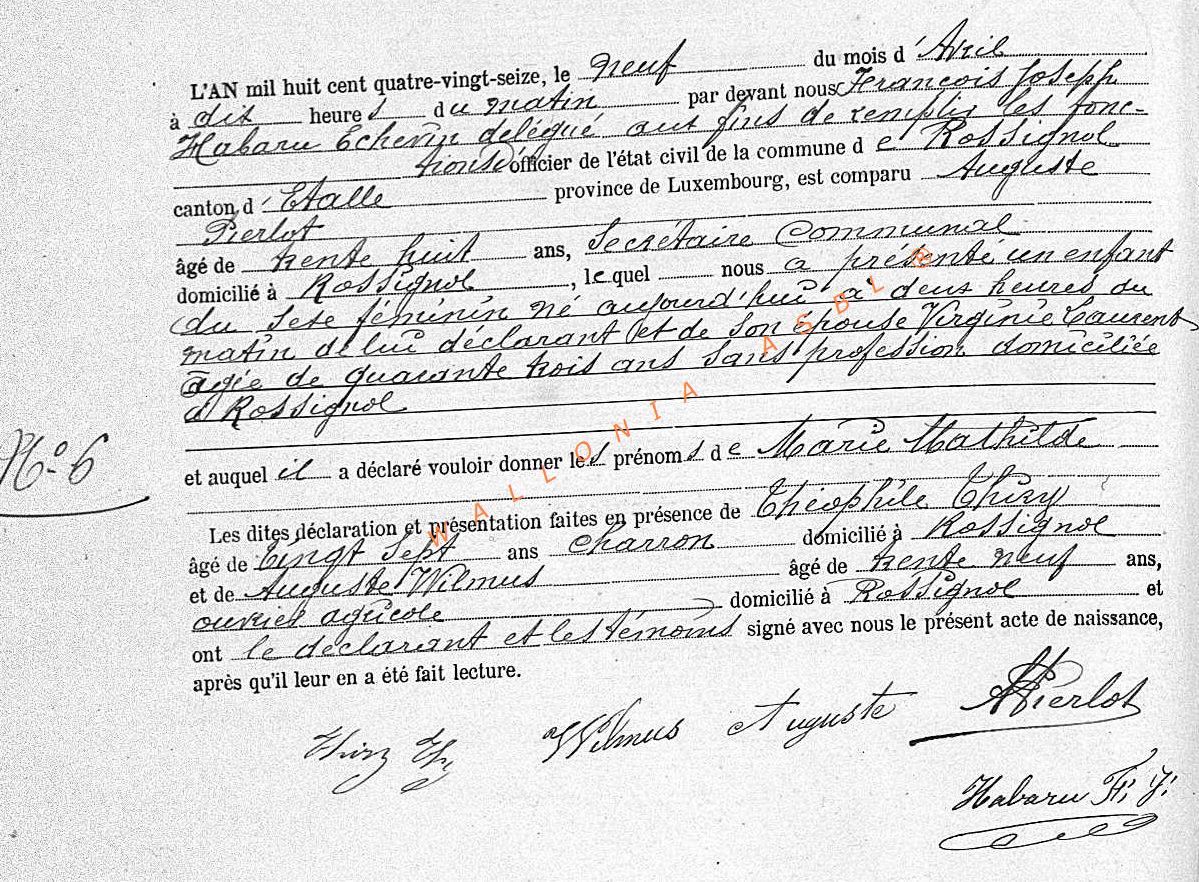 L'AN mil huit cent quatre-vingt-seize, le neuf du mois d' Avril
à dix heures du matin par devant nous François Joseph
Habaru Echevin délégué aux fins de remplir les fonc-
tions d'officier de l'état civil de la commune de Rossignol
canton d' Etalle province de Luxembourg, est comparu Auguste
Pierlot
âgé de trente huit ans, Secrétaire Communal
domicilié à Rossignol, lequel nous a présenté un enfant
du sexe féminin né aujourd'hui à deux heures du
matin de lui déclarant et de son épouse Virginie Laurent
agée de quarante trois ans sans profession domiciliée
à Rossignol
N° 6
et auquel il a déclaré vouloir donner les prénoms de Marie Mathilde
Les dites déclaration et présentation faites en présence de Théophile Thiry
âgé de vingt sept ans charron domicilié à Rossignol
et de Auguste Wilmus âgé de trente neuf ans,
ouvrier agricole domicilié à Rossignol et
ont le déclarant et les témoins signé avec nous le présent acte de naissance,
après qu'il leur en a été fait lecture.
Thiry Th. Wilmus Auguste APierlot
Habaru F. J.
WALLONIA ASBL ®